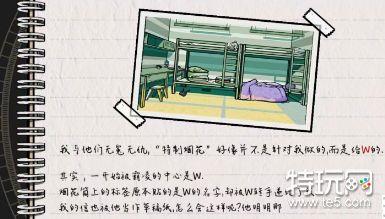 我与他们无冤无仇,“特制烟花”好像并不是针对我做的,而是给W的.
其实，一开始被霸凌的中心是W.
烟花筒上的标签原本贴的是W的名字,却被W转手送
我的信也被他当作草稿纸,怎么会这样呢?他明明即
特玩网
www.te5.com